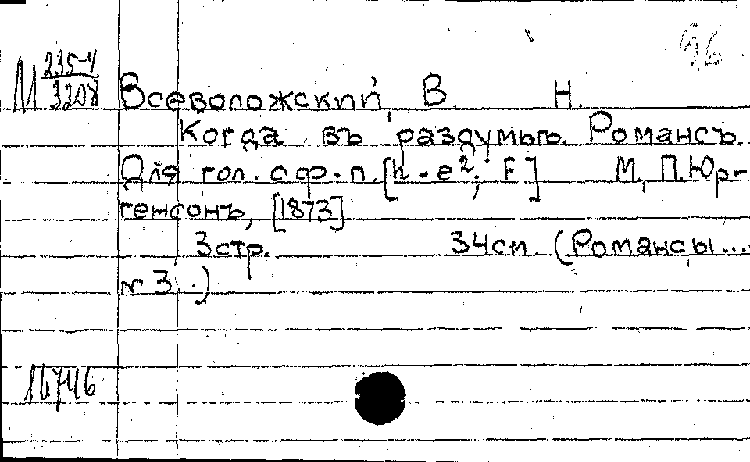 96
М 235-4/3208
Всеволожский В. Н.
Когда въ раздумьѣ. Романсъ.
Для гол. с ф-п. [h-e²; F] М., П. Юр-
генсонъ, [1873]
3 стр. 34 см. (Романсы...
№ 3...)
16746